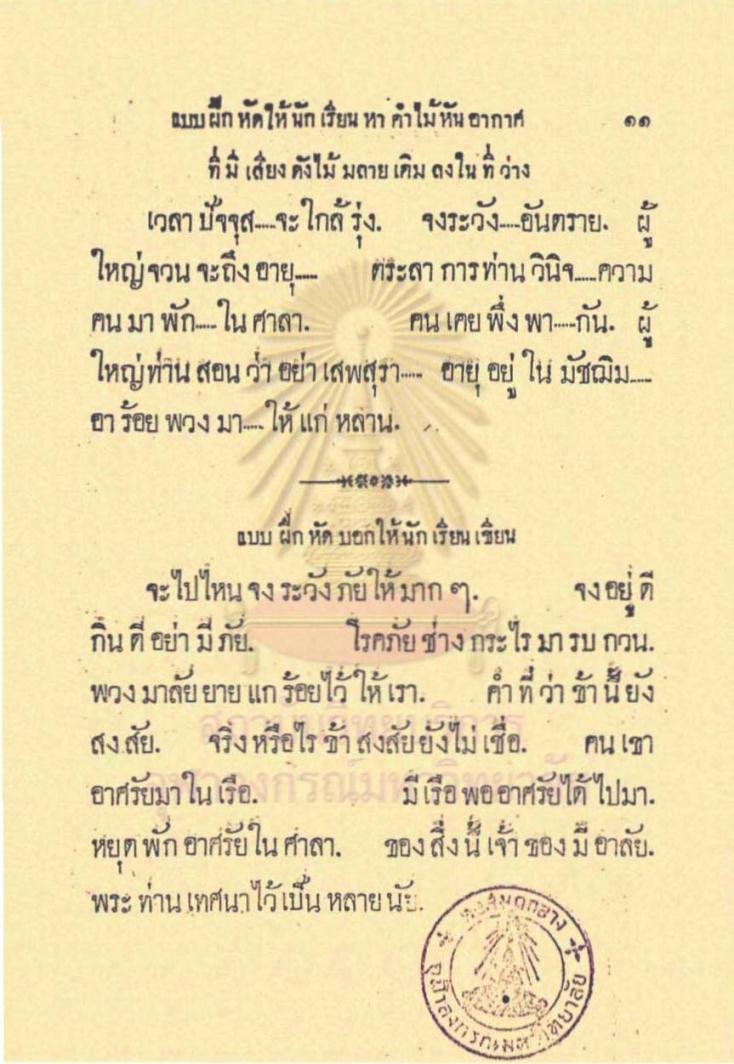 แบบ ฝึก หัดให้ นัก เรียน หา คำไม้ หัน อากาศ ๑๑
ที่ มี เสียง ดังไม้ มลาย เติม ลงใน ที่ ว่าง
เวลา ปัจจุส.....จะ ใกล้ รุ่ง. จงระวัง.....อันตราย. ผู้
ใหญ่ จวน จะถึง อายุ..... ตระลา การ ท่าน วินิจ.....ความ
คน มา พัก.....ใน ศาลา. คน เคย พึ่ง พา.....กัน. ผู้
ใหญ่ ท่าน สอน ว่า อย่า เสพสุรา..... อายุ อยู่ ใน มัชฌิม.....
อา ร้อย พวง มา.....ให้ แก่ หลาน.
แบบ ฝึก หัด บอกให้ นัก เรียน เขียน
จะไปไหน จง ระวัง ภัย ให้ มาก ๆ. จง อยู่ ดี
กิน ดี อย่า มี ภัย. โรคภัย ช่าง กระไร มา รบ กวน.
พวง มาลัย ยาย แก ร้อยไว้ ให้ เรา. คำ ที่ ว่า ข้า นี้ ยัง
สง สัย. จริง หรือไร ข้า สงสัย ยังไม่ เชื่อ. คน เขา
อาศรัย มา ใน เรือ. มี เรือ พอ อาศรัย ได้ ไป มา.
หยุด พัก อาศรัย ใน ศาลา. ของ สิ่ง นี้ เจ้า ของ มี อาลัย.
พระ ท่าน เทศนา ไว้ เป็น หลาย นัย.
หอสมุดกลาง
จุฬาลงกรณ์มหาวิทยาลัย